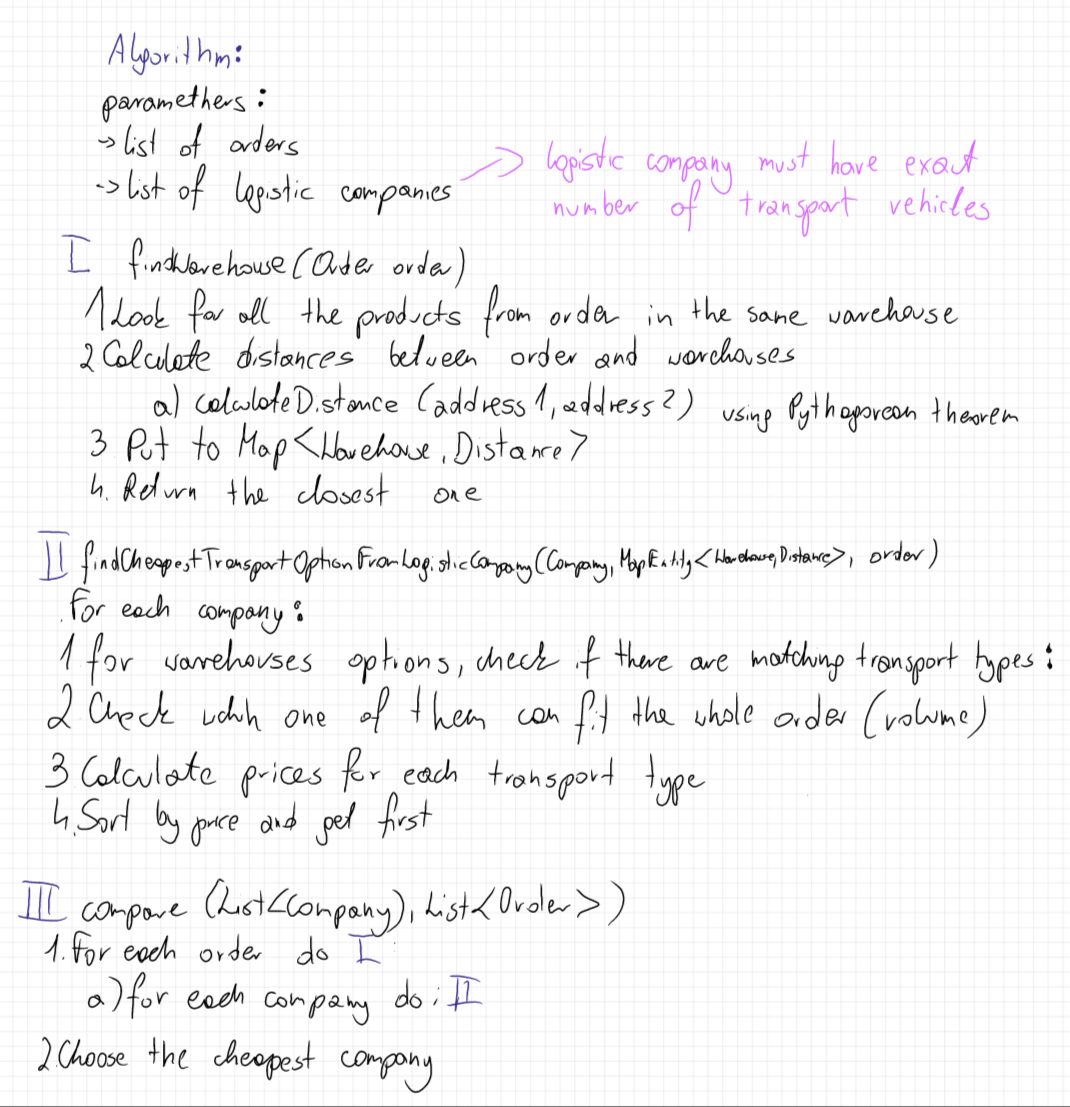 Algorithm:
paramethers:
→ list of orders
→ list of logistic companies
→ logistic company must have exact
number of transport vehicles
I findWarehouse (Order order)
1 Look for all the products from order in the same warehouse
2 Calculate distances between order and warehouses
a) calculateDistance (address 1, address 2) using Pythagorean theorem
3 Put to Map<Warehouse, Distance>
4. Return the closest one
II findCheapestTransportOptionFromLogisticCompany (Company, MapEntity<Warehouse, Distance>, order)
for each company:
1 for warehouses options, check if there are matching transport types:
2 Check which one of them can fit the whole order (volume)
3 Calculate prices for each transport type
4. Sort by price and get first
III compare (List<Company), List<Order>)
1. For each order do I
a) for each company do: II
2. Choose the cheapest company